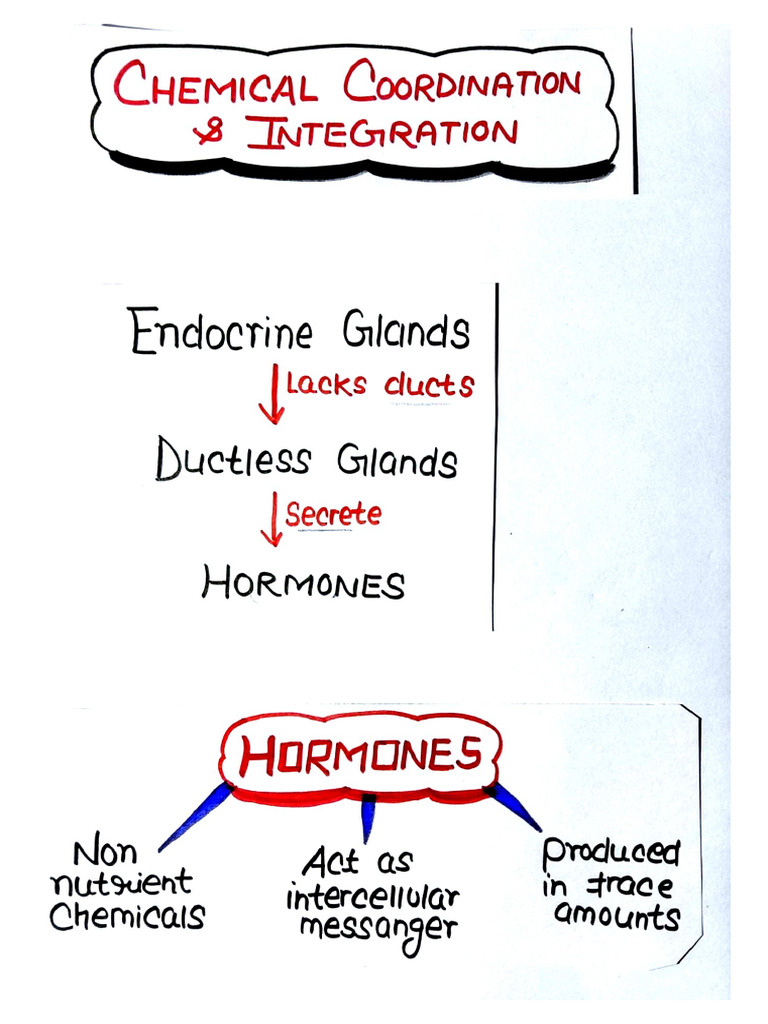 CHEMICAL COORDINATION
& INTEGRATION
Endocrine Glands
Lacks ducts
Ductless Glands
Secrete
HORMONES
HORMONES
Non
nutrient
Chemicals
Act as
intercellular
messanger
Produced
in trace
amounts